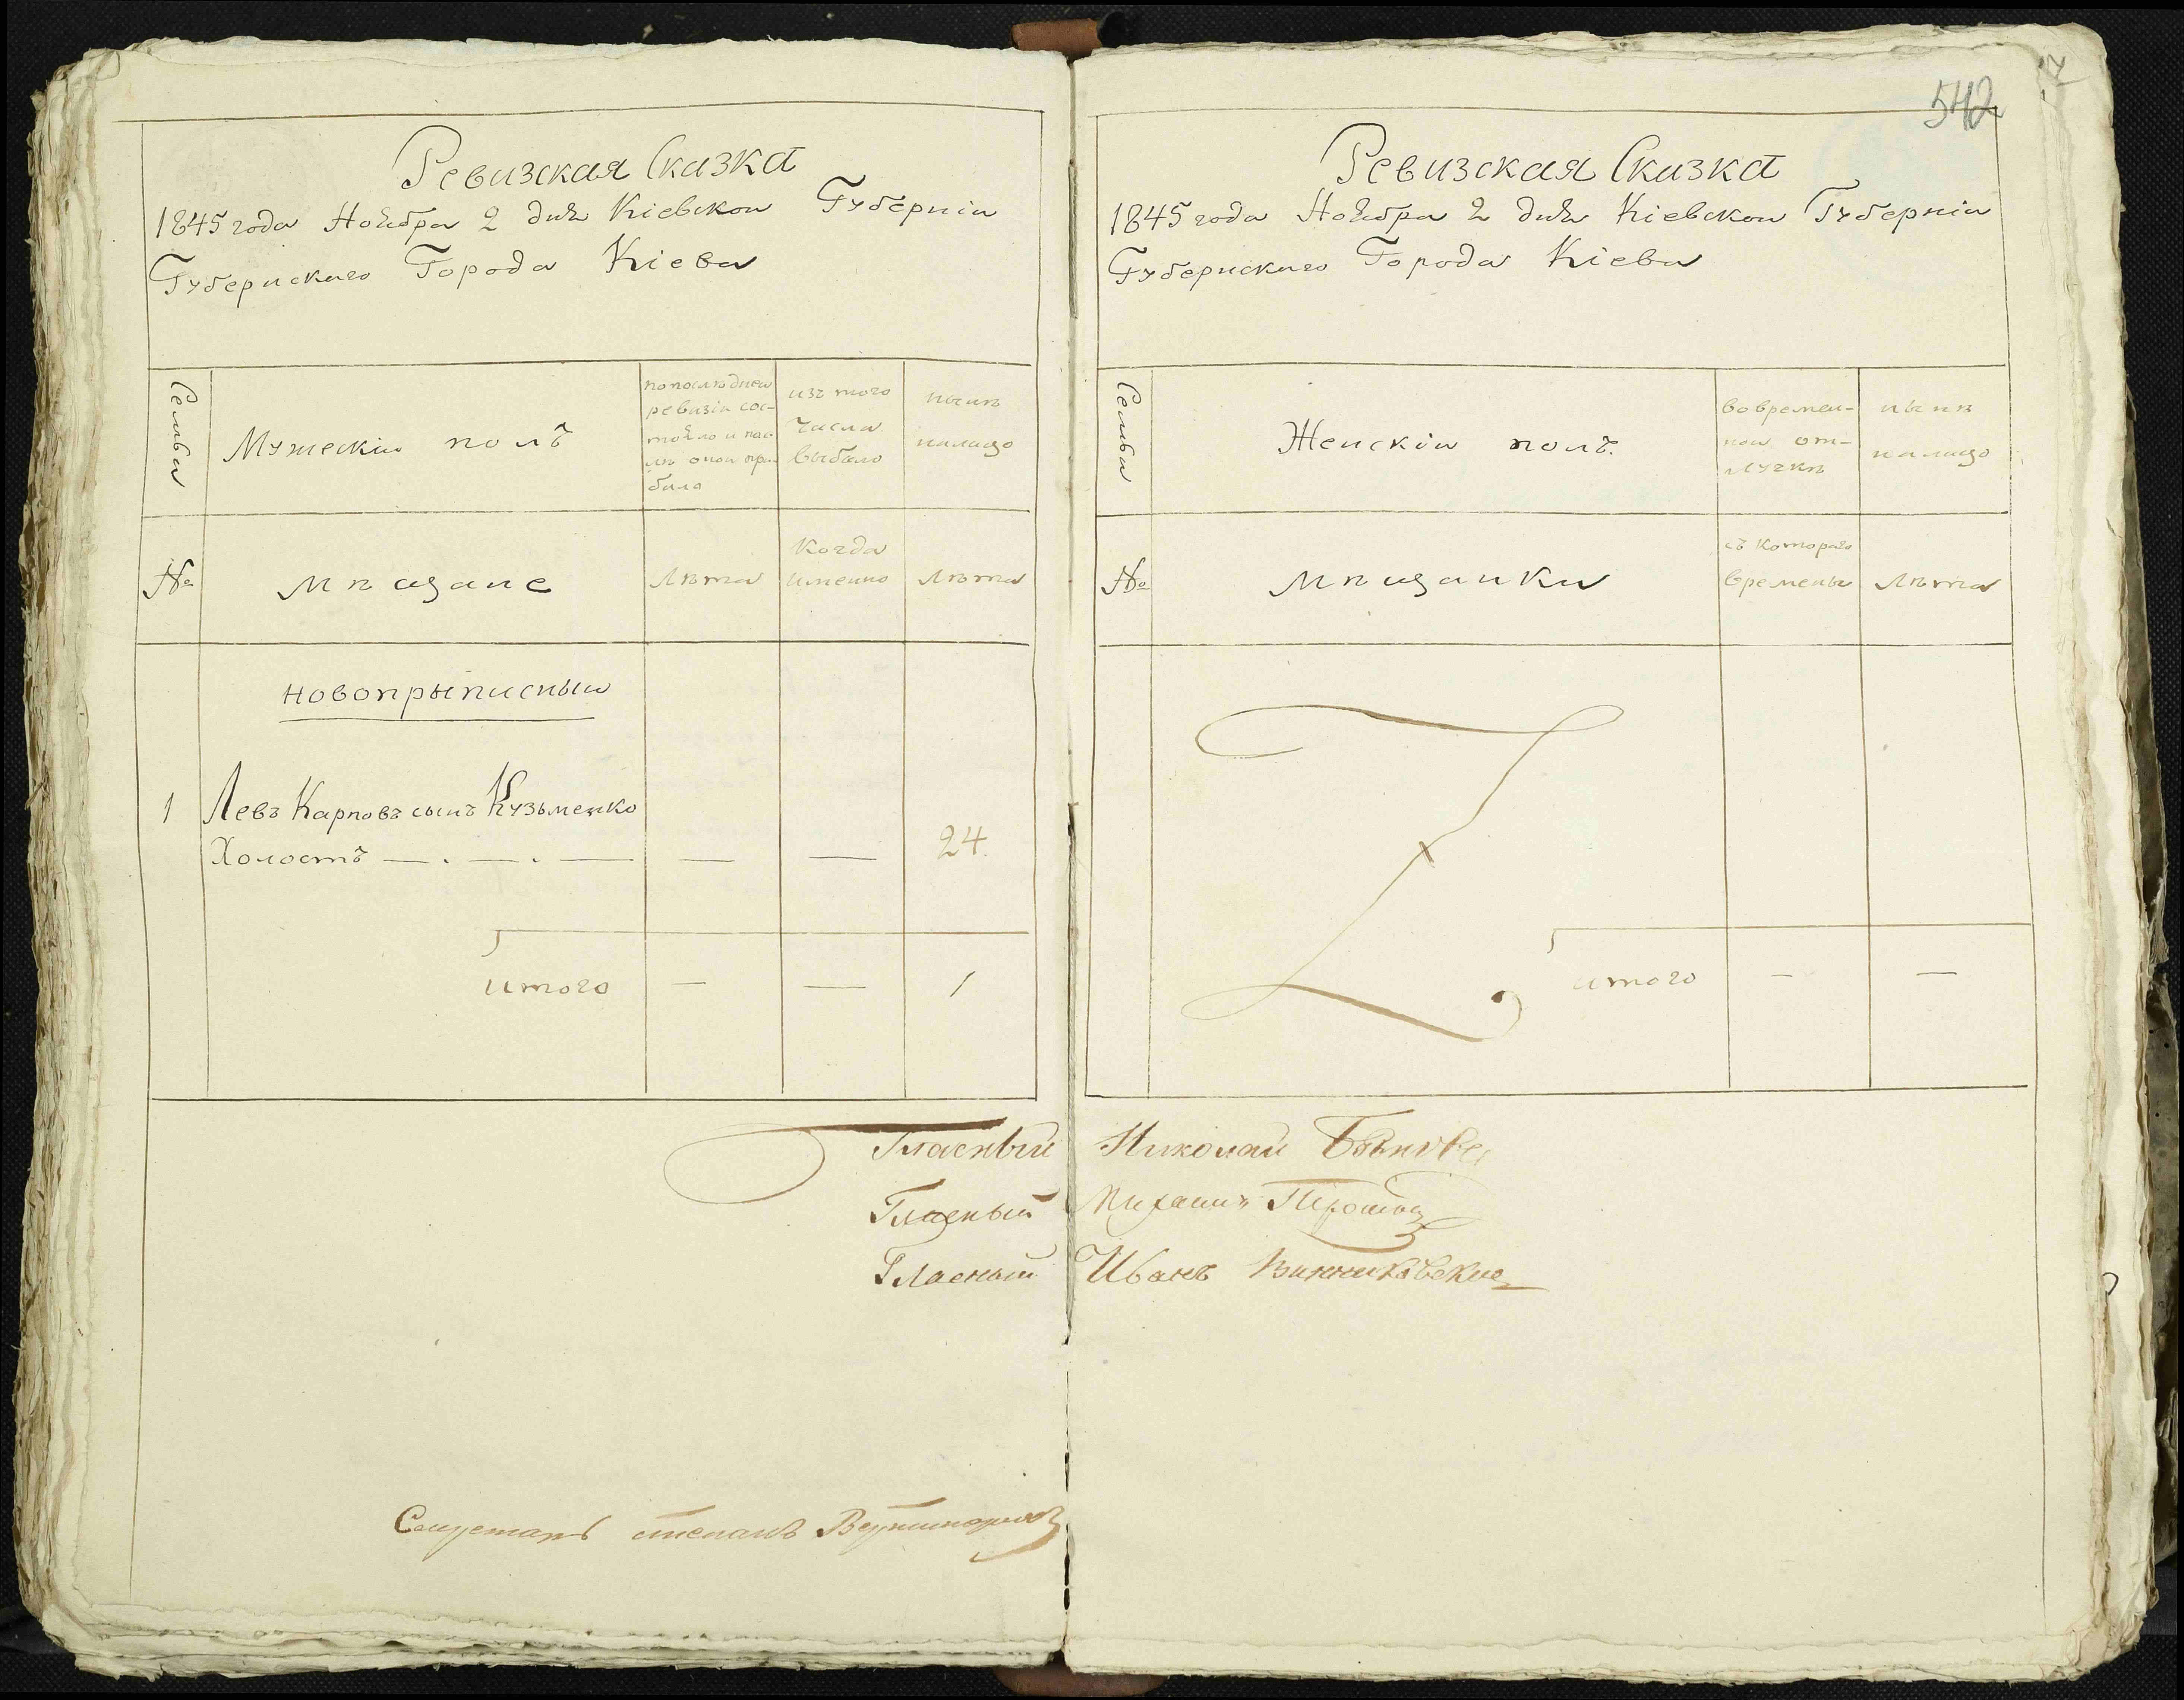 Ревизская Сказка
1845 года Ноября 2 дня Кіевскои Губерніи
Губернскаго Города Кіева
Семьи
Мужескіи полъ
по послѣднеи
ревизіи сос-
тояло и пос-
лѣ онои при
было
изъ того
числа
выбыло
нынѣ
налицо
№
мѣщане
Лѣта
когда
именно
Лѣта
новопрыписныи
1 Левъ Карповъ сынъ Кузьменко
Холостъ — . — . — — — 24
итого — — 1
542
Ревизская Сказка
1845 года Ноября 2 дня Кіевскои Губерніи
Губернскаго Города Кіева
Семьи
Женскіи полъ.
во времен-
нои от-
лучкѣ
нынѣ
налицо
№
мѣщанки
съ котораго
времены
Лѣта
итого — —
Гласный Николай
Гласный Михаилъ
Гласный Иванъ Винниковскии
степанъ